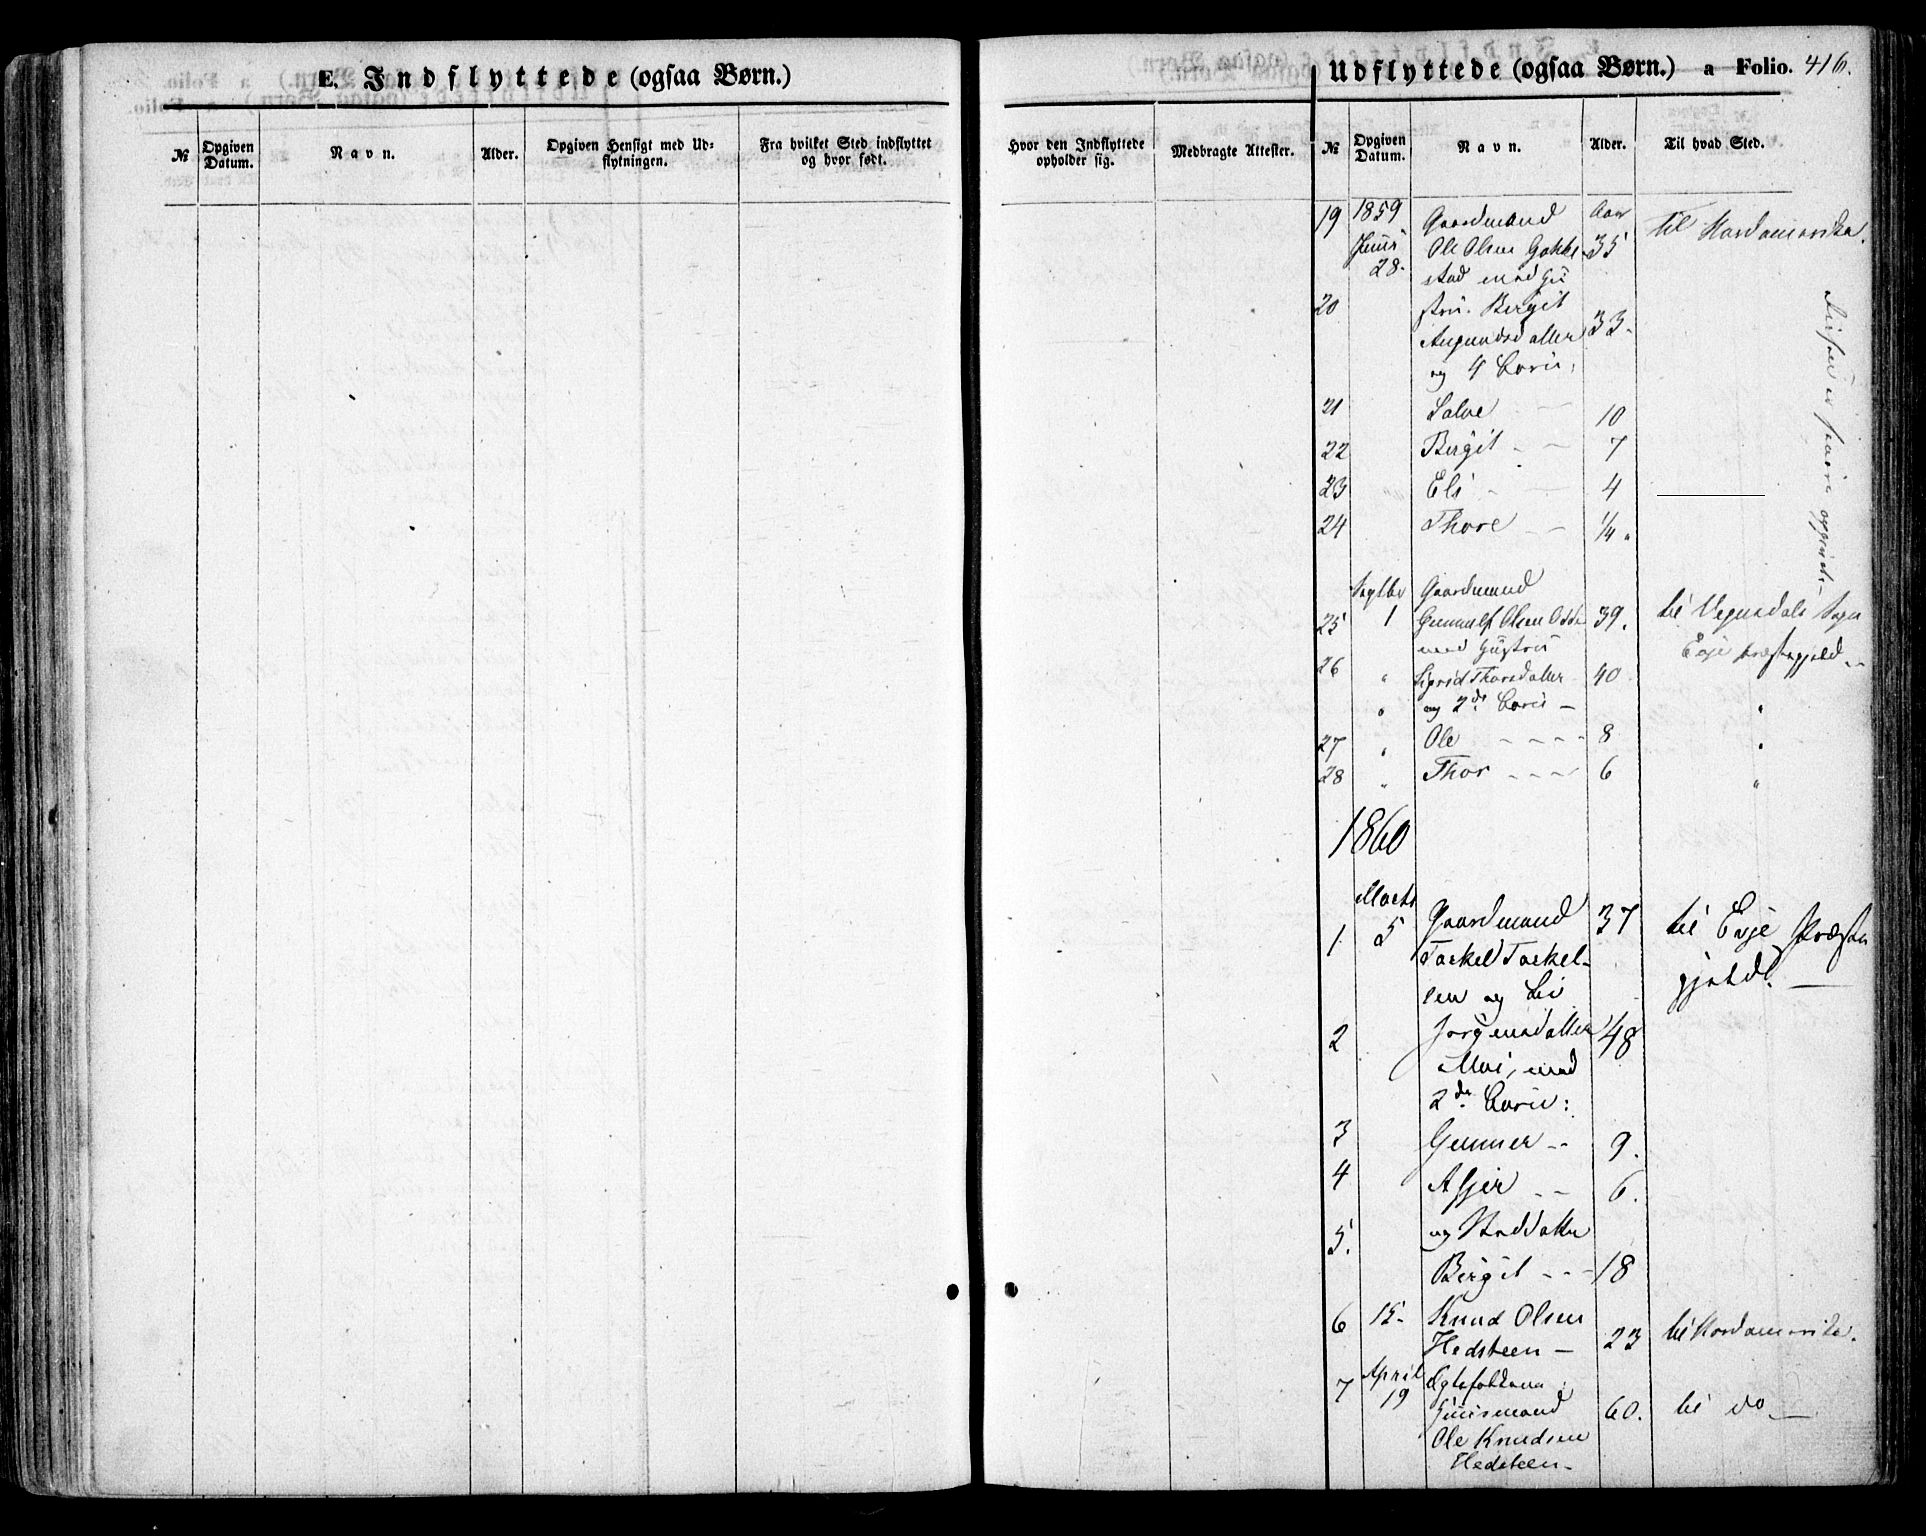 E. Indflyttede (ogsaa Børn.)
Udflyttede (ogsaa Børn.) a Folio. 416.
№ Opgiven Datum. Navn. Alder. Opgiven Hensigt med Udflytningen. Fra hvilket Sted indflyttet og hvor født. Hvor den Indflyttede opholder sig. Medbragte Attester. № Opgiven Datum. Navn. Alder. Til hvad Sted.
19 1859 Gaardmand Aar
Juni Ole Olsen 35 til Nordamerika.
28. stad med Hu
20 stru. Bergit
Augundsdatter 33.
og 4 Børn,
21 Salve 10
22 Bergit 7
23 " Eli 4
24 Thore 1/4
Gaardmand
25 1 Gunnulf Olsen 39. til Vegusdals Sogn
med Hustru Evje Præstegjeld
26 " Sigrid Thorsdatter 40
" og 2de Børn "
27 " Ole 8 "
28 " Thor 6 "
1860
Marts
1 5 Gaardmand 37 til Evje Præste
Torkel Torkel- gjeld.
sen og Liv
2 Jorgensdatter 48
Moi, med
2de Børn:
3 Gunner 9.
4 Asjer 6.
5. og Steddatter
Bergit 18
6 15. Knud Olsen
Hedsteen 23 til Nordamerika.
7 April Egtefolkene
19 Huusmand 60. til do
Ole Knudsen
Hedsteen